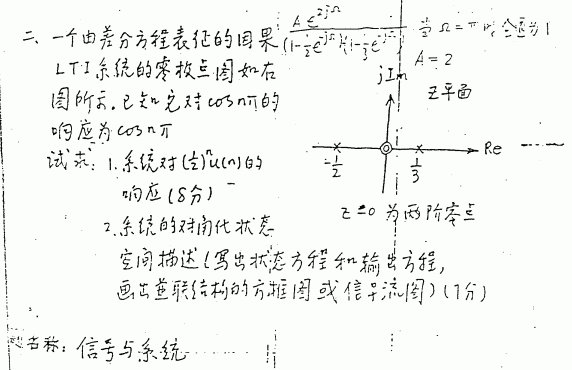 二、一个由差分方程表征的因果
LTI系统的零极点图如右
图所示,已知它对cosnπ的
响应为cosnπ
试求:1.系统对(½)ⁿu(n)的
响应(8分)
2.系统的对角化状态
空间描述(写出状态方程和输出方程,
画出并联结构的方框图或信号流图)(7分)
当Ω=π时
A=2
jIm
z平面
Re
-1/2
1/3
z=0为两阶零点
名称:信号与系统